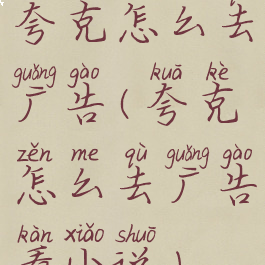 夸克怎么去
guǎng gào kuā kè
广告(夸克
zěn me qù guǎng gào
怎么去广告
kàn xiǎo shuō
看小说)